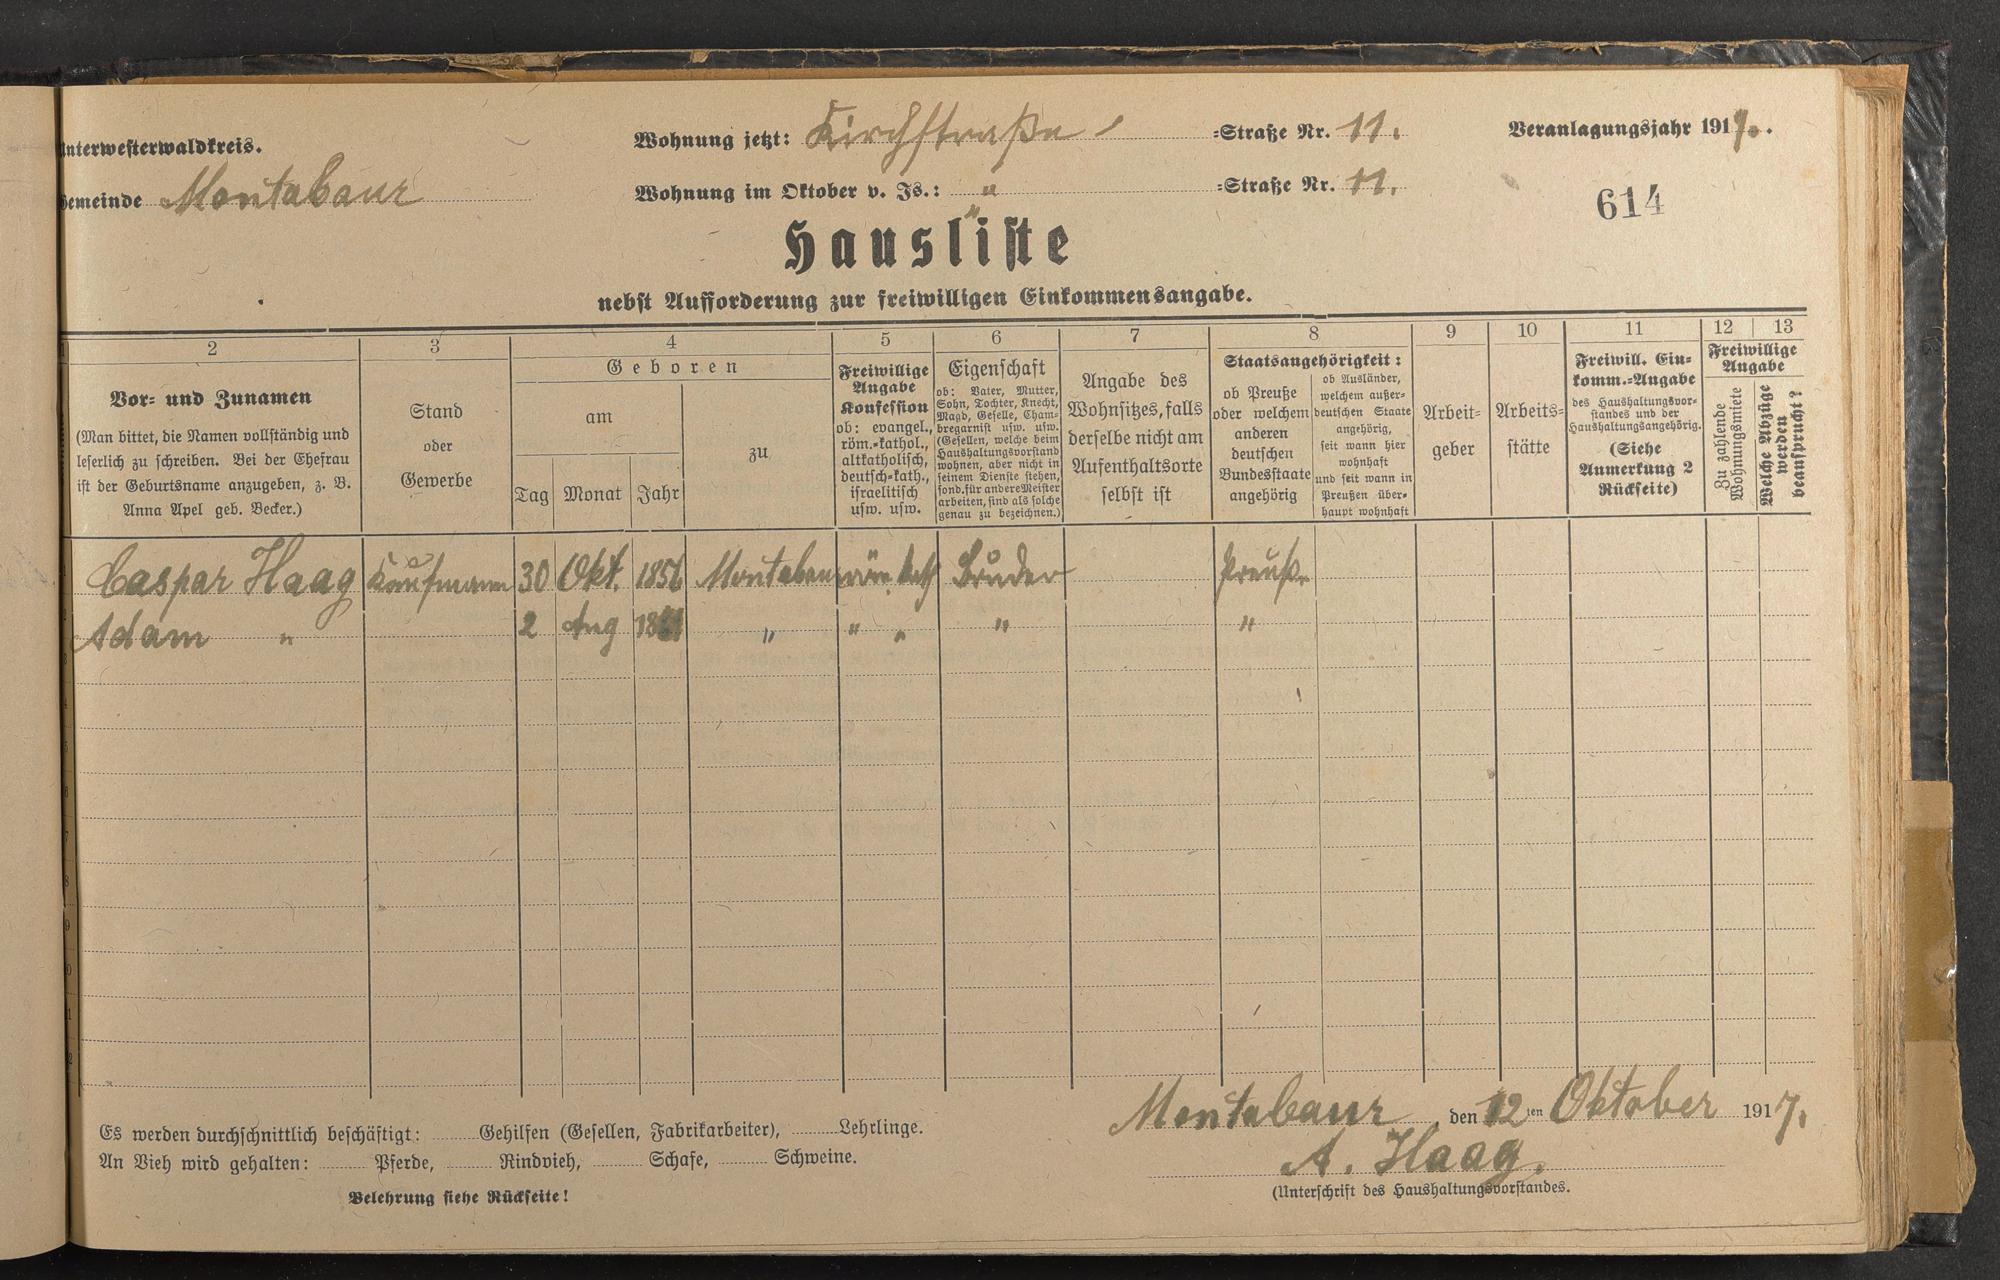 Unterwesterwaldkreis.
Gemeinde Montabaur
Wohnung jetzt: Kirchstraße =Straße Nr. 11.
Wohnung im Oktober v. Js.: " =Straße Nr. 11.
Veranlagungsjahr 1917.
614
Hausliste
nebst Aufforderung zur freiwilligen Einkommensangabe.
2 3 4 5 6 7 8 9 10 11 12 13
Vor- und Zunamen
(Man bittet, die Namen vollständig und
leserlich zu schreiben. Bei der Ehefrau
ist der Geburtsname anzugeben, z. B.
Anna Apel geb. Becker.)
Stand
oder
Gewerbe
Geboren
am
Tag Monat Jahr
zu
Freiwillige
Angabe
Konfession
ob: evangel.,
röm.-kathol.,
altkatholisch,
deutsch-kath.,
israelitisch
usw. usw.
Eigenschaft
ob: Vater, Mutter,
Sohn, Tochter, Knecht,
Magd, Geselle, Cham-
bregarnist usw. usw.
(Gesellen, welche beim
Haushaltungsvorstand
wohnen, aber nicht in
seinem Dienste stehen,
sond. für andere Meister
arbeiten, sind als solche
genau zu bezeichnen.)
Angabe des
Wohnsitzes, falls
derselbe nicht am
Aufenthaltsorte
selbst ist
Staatsangehörigkeit:
ob Preuße
oder welchem
anderen
deutschen
Bundesstaate
angehörig
ob Ausländer,
welchem außer-
deutschen Staate
angehörig,
seit wann hier
wohnhaft
und seit wann in
Preußen über-
haupt wohnhaft
Arbeit-
geber
Arbeits-
stätte
Freiwill. Ein-
komm.-Angabe
des Haushaltungsvor-
standes und der
Haushaltungsangehörig.
(Siehe
Anmerkung 2
Rückseite)
Freiwillige
Angabe
Zu zahlende
Wohnungsmiete
Welche Abzüge
werden
beansprucht?
Caspar Haag Kaufmann 30 Okt. 1856 Montabaur röm. kath Bruder Preuße
Adam " 2 Aug " " " " "
Es werden durchschnittlich beschäftigt: Gehilfen (Gesellen, Fabrikarbeiter), Lehrlinge.
An Vieh wird gehalten: Pferde, Rindvieh, Schafe, Schweine.
Belehrung siehe Rückseite!
Montabaur, den 12ten Oktober 1917.
A. Haag.
(Unterschrift des Haushaltungsvorstandes.